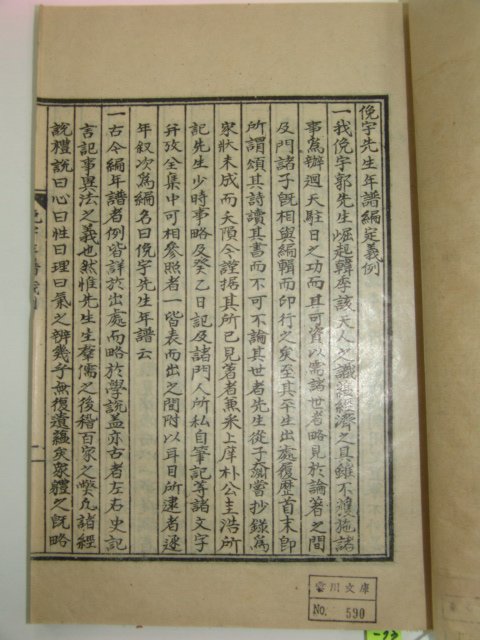 俛宇先生年譜編定義例
一我俛宇郭先生崛起韓季該天人之識蘊經濟之具雖不獲施諸
事爲辦廻天駐日之功而其可資以需諸世者略見於論著之間
及門諸子旣相與編輯而印行之矣至其平生出處履歷首末卽
所謂頌其詩讀其書而不可不論其世者先生從子奫嘗抄錄爲
家狀未成而夭隕今謹据其所已見著者兼釆上庠朴公圭浩所
記先生少時事略及癸乙日記及諸門人所私自筆記等諸文字
幷攷全集中可相參照者一皆表而出之間附以耳目所逮者逐
年叙次爲編名曰俛宇先生年譜云
一古今編年譜者例皆詳於出處而略於學說盖亦古者左右史記
言記事異法之義也然惟先生生羣儒之後稽百家之弊凡諸經
說禮說曰心曰性曰理曰氣之辨幾乎無復遺蘊矣衆軆之旣略
俛宇年譜
一
雲川文庫
No. 590